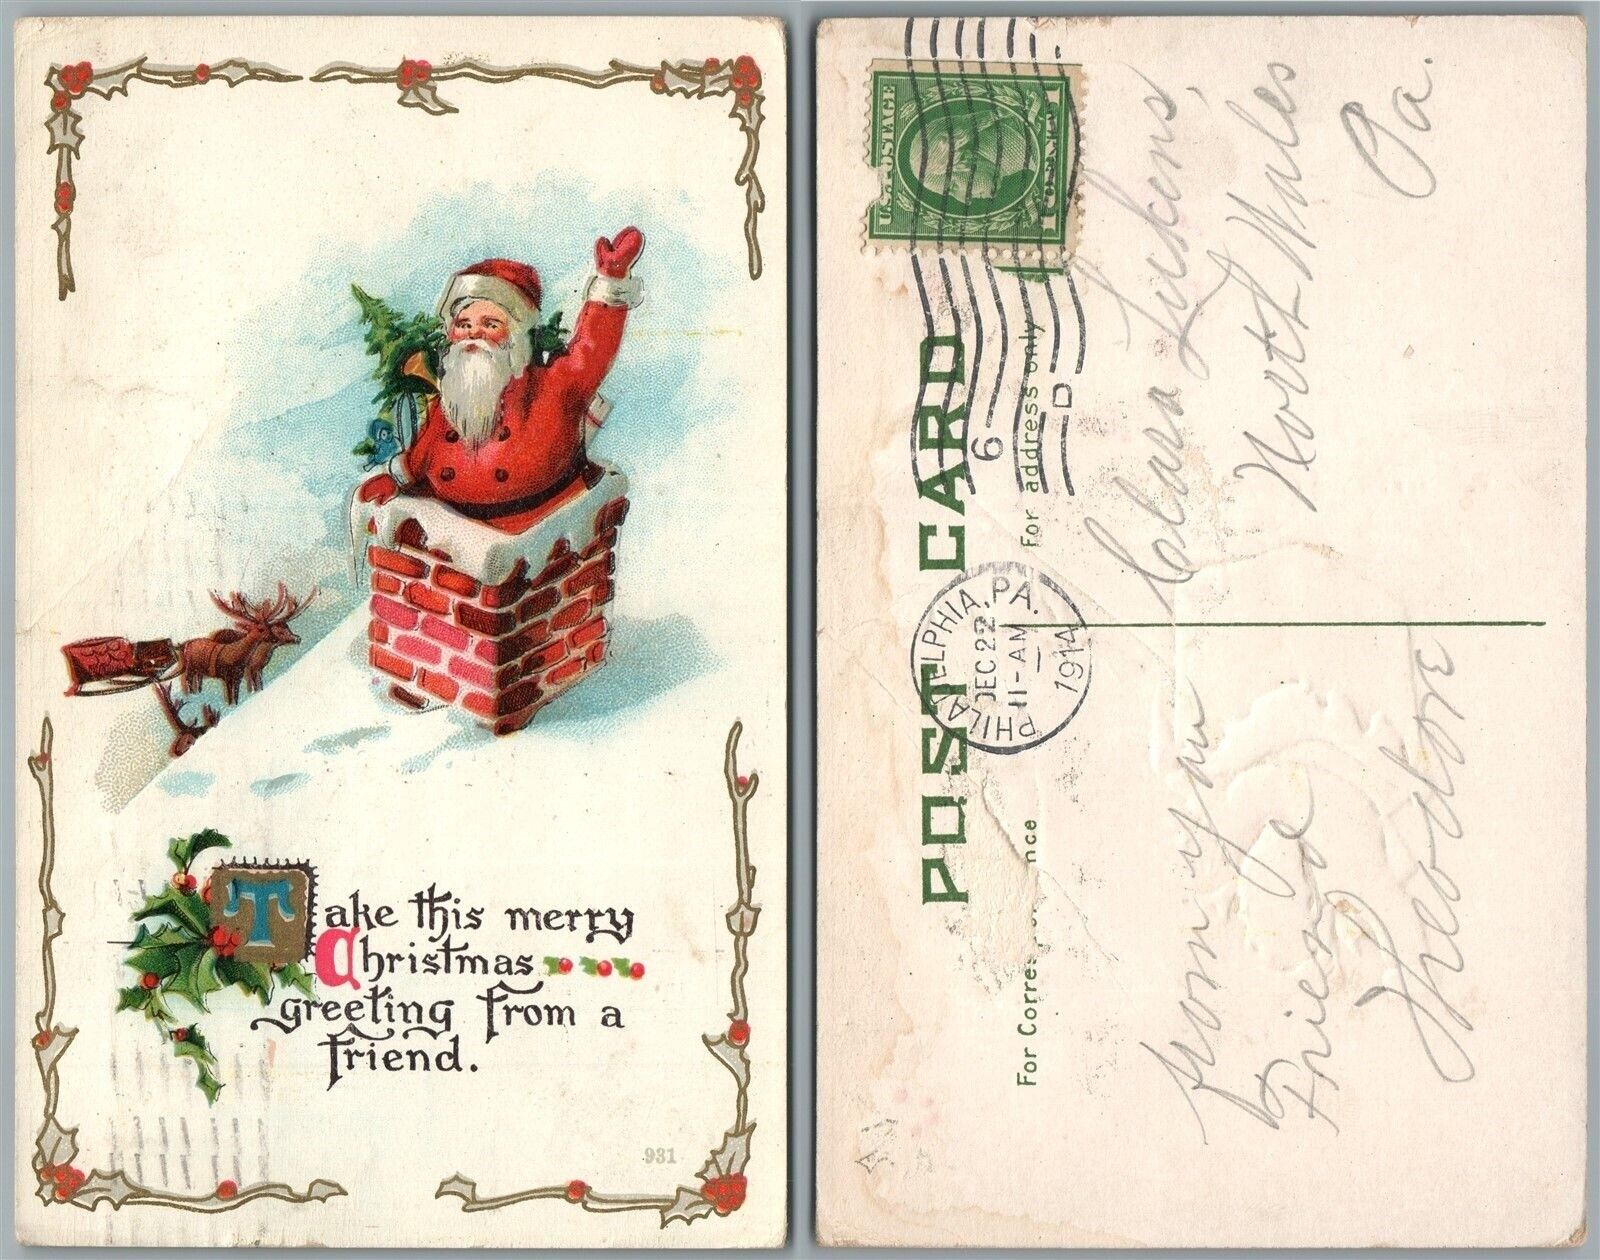 Take this merry
Christmas
greeting from a
friend.
931
U.S. POSTAGE
PHILADELPHIA, PA.
DEC 22
11-AM
1914
6
D
POST CARD
For Correspondence
For address only
from your
Friend
Theodore
Clara Lukens,
North Wales
Pa.